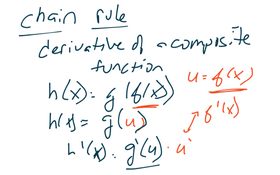 chain rule
derivative of a composite
function
h(x) = g(f(x))
u = f(x)
h(x) = g(u)
f'(x)
h'(x) = g'(u) · u'